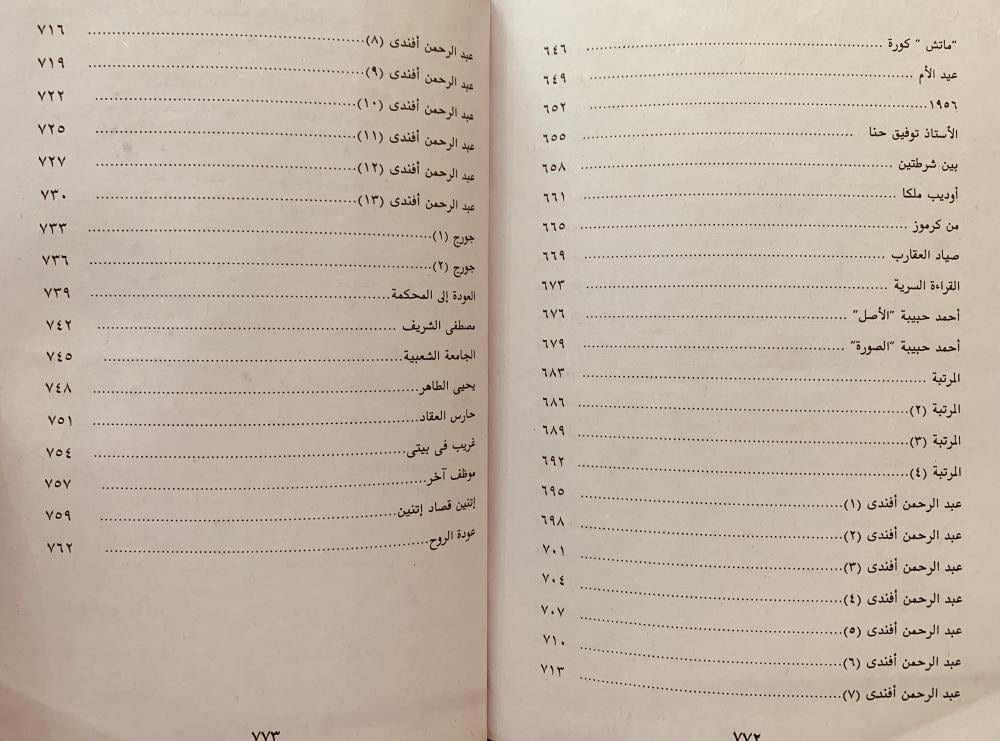 "ماتش" كورة .......... ٦٤٦
عيد الأم .......... ٦٤٩
١٩٥٦ .......... ٦٥٢
الأستاذ توفيق حنا .......... ٦٥٥
بين شرطتين .......... ٦٥٨
أوديب ملكا .......... ٦٦١
من كرموز .......... ٦٦٥
صياد العقارب .......... ٦٦٩
القراءة السرية .......... ٦٧٣
أحمد حبيبة "الأصل" .......... ٦٧٦
أحمد حبيبة "الصورة" .......... ٦٧٩
المرتبة .......... ٦٨٣
المرتبة (٢) .......... ٦٨٦
المرتبة (٣) .......... ٦٨٩
المرتبة (٤) .......... ٦٩٢
عبد الرحمن أفندى (١) .......... ٦٩٥
عبد الرحمن أفندى (٢) .......... ٦٩٨
عبد الرحمن أفندى (٣) .......... ٧٠١
عبد الرحمن أفندى (٤) .......... ٧٠٤
عبد الرحمن أفندى (٥) .......... ٧٠٧
عبد الرحمن أفندى (٦) .......... ٧١٠
عبد الرحمن أفندى (٧) .......... ٧١٣
٧٧٢
عبد الرحمن أفندى (٨) .......... ٧١٦
عبد الرحمن أفندى (٩) .......... ٧١٩
عبد الرحمن أفندى (١٠) .......... ٧٢٢
عبد الرحمن أفندى (١١) .......... ٧٢٥
عبد الرحمن أفندى (١٢) .......... ٧٢٧
عبد الرحمن أفندى (١٣) .......... ٧٣٠
جورج (١) .......... ٧٣٣
جورج (٢) .......... ٧٣٦
العودة إلى المحكمة .......... ٧٣٩
مصطفى الشريف .......... ٧٤٢
الجامعة الشعبية .......... ٧٤٥
يحيى الطاهر .......... ٧٤٨
حارس العقاد .......... ٧٥١
غريب فى بيتى .......... ٧٥٤
موظف آخر .......... ٧٥٧
إتنين قصاد إتنين .......... ٧٥٩
عودة الروح .......... ٧٦٢
٧٧٣